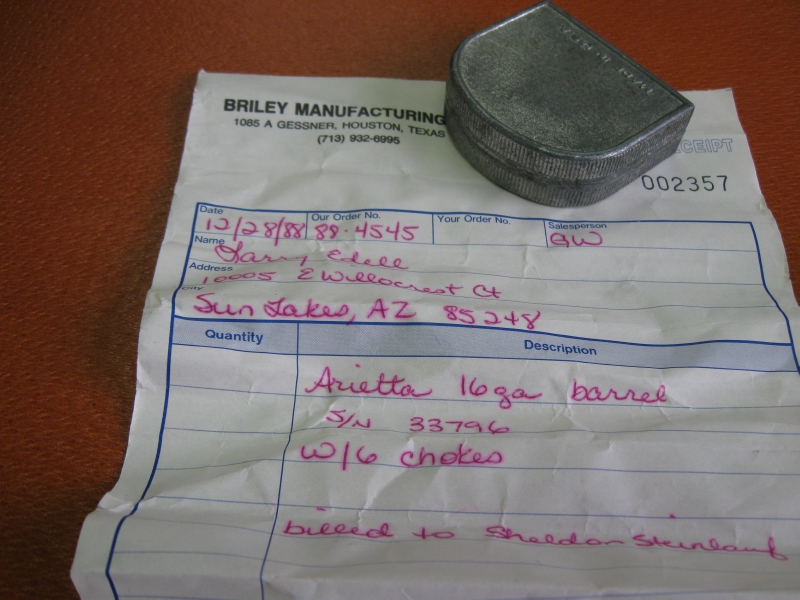 BRILEY MANUFACTURING
1085 A GESSNER, HOUSTON, TEXAS
(713) 932-6995
RECEIPT
002357
Date Our Order No. Your Order No. Salesperson
12/28/88 88-4545 GW
Name Larry Edell
Address 10005 E Willocrest Ct
City Sun Lakes, AZ 85248
Quantity Description
Arietta 16ga barrel
S/N 33796
W/6 chokes
billed to Sheldon